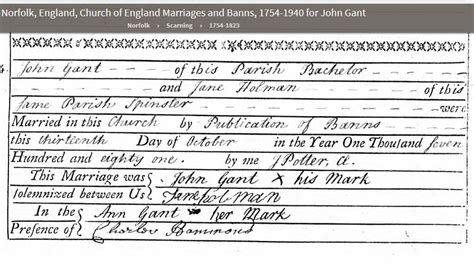 Norfolk, England, Church of England Marriages and Banns, 1754-1940 for John Gant
Norfolk › Scarning › 1754-1823
John Gant of this Parish Bachelor
and Jane Holman of this
same Parish Spinster were
Married in this Church by Publication of Banns
this thirteenth Day of October in the Year One Thousand seven
Hundred and eighty one. by me J Potter,
This Marriage was John Gant X his Mark
solemnized between Us Jane holman
In the Ann Gant her Mark
Presence of Charles